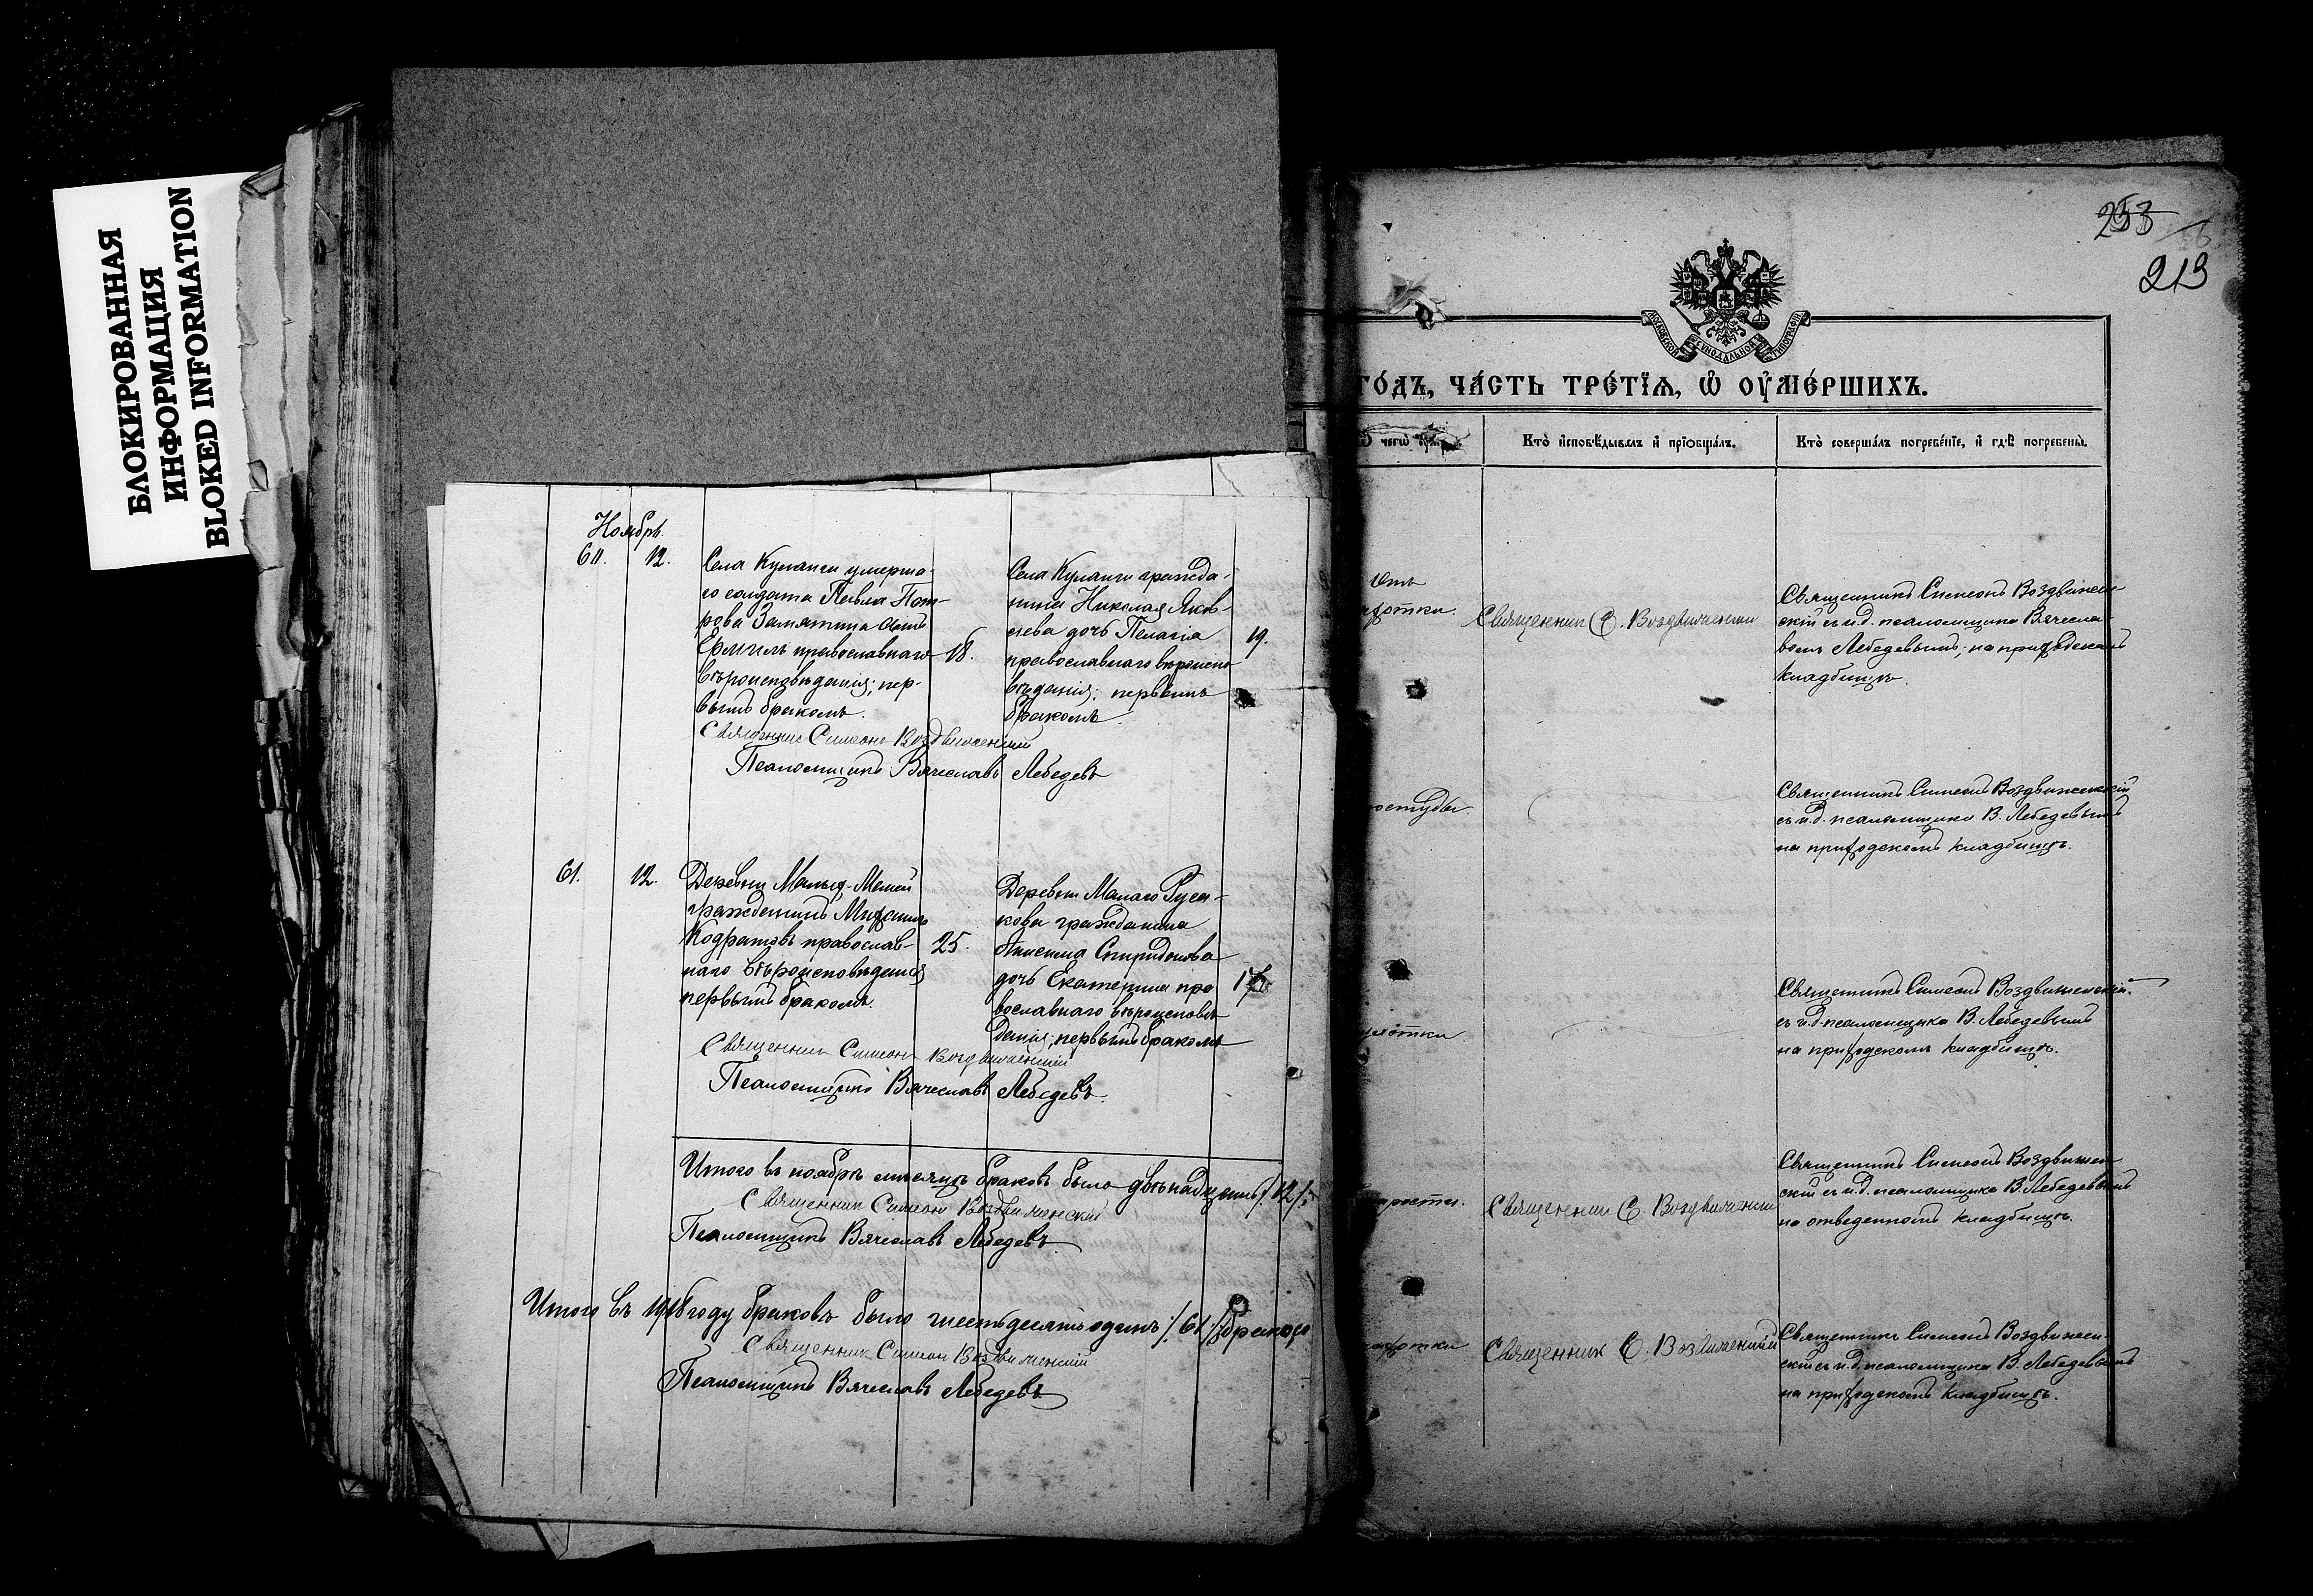 БЛОКИРОВАННАЯ
ИНФОРМАЦИЯ
BLOKED INFORMATION
Ноябрь.
60. 12.
Села Куланги умерша-
го солдата Павла Пет-
рова Замятина сынъ
Ермилъ православнаго
вѣроисповѣданія; пер-
вымъ бракомъ.
18.
Села Куланги гражда-
нина Николая Яков-
лева дочь Пелагія
православнаго вѣроиспо
вѣданія; первымъ
бракомъ
19.
Священник Симеон Воздвиженский
Псаломщикъ Вячеславъ Лебедевъ
61. 12.
Деревни
гражданинъ Михаилъ
Кодратовъ православ-
наго вѣроисповѣданія
первымъ бракомъ.
25.
Деревни Малаго Руса-
кова гражданина
Спиридонова
дочь Екатерина пра
вославнаго вѣроисповѣ
данія; первымъ бракомъ
Священник Симеон Воздвиженский
Псаломщикъ Вячеславъ Лебедевъ.
Итого въ ноябрѣ мѣсяцѣ браковъ было двѣнадцать /. 12 /.
Священник Симеон Воздвиженский
Псаломщикъ Вячеславъ Лебедевъ.
Итого въ 1918 году браковъ было шестьдесятъ одинъ /. 61 /. браковъ
Священник Симеон Воздвиженский
Псаломщикъ Вячеславъ Лебедевъ
253
213
МОСКОВСКОЙ СѴНОДАЛЬНОЙ ТИПОГРАФІИ
ГО́ДЪ, ЧА́СТЬ ТРЕ́ТЇѦ, Ѡ҆ ОУ҆МЕ́РШИХЪ.
Кто̀ и҆сповѣ́дывалъ и҆ прїѻбща́лъ.
Кто̀ соверша́лъ погребе́нїе, и҆ гдѣ̀ погребены̀.
отъ
хотки.
Священник С. Воздвиженский
Священникъ Симеонъ Воздвижен-
скій съ и.д. псаломщика Вячесла-
вомъ Лебедевымъ; на приходскомъ
кладбищѣ.
ростуды.
Священникъ Симеонъ Воздвиженскій
съ и.д. псаломщика В. Лебедевымъ
на приходскомъ кладбищѣ.
Священникъ Симеонъ Воздвиженскій.
съ и.д. псаломщика В. Лебедевымъ
на приходскомъ кладбищѣ.
арости.
Священник С. Воздвиженский
Священникъ Симеонъ Воздвижен
скій съ и.д. псаломщика В. Лебедевымъ
на отведенномъ кладбищѣ.
хотки
Священник С. Воздвиженский
Священникъ Симеонъ Воздвижен-
скій съ и.д. псаломщика В. Лебедевымъ
на приходскомъ кладбищѣ.